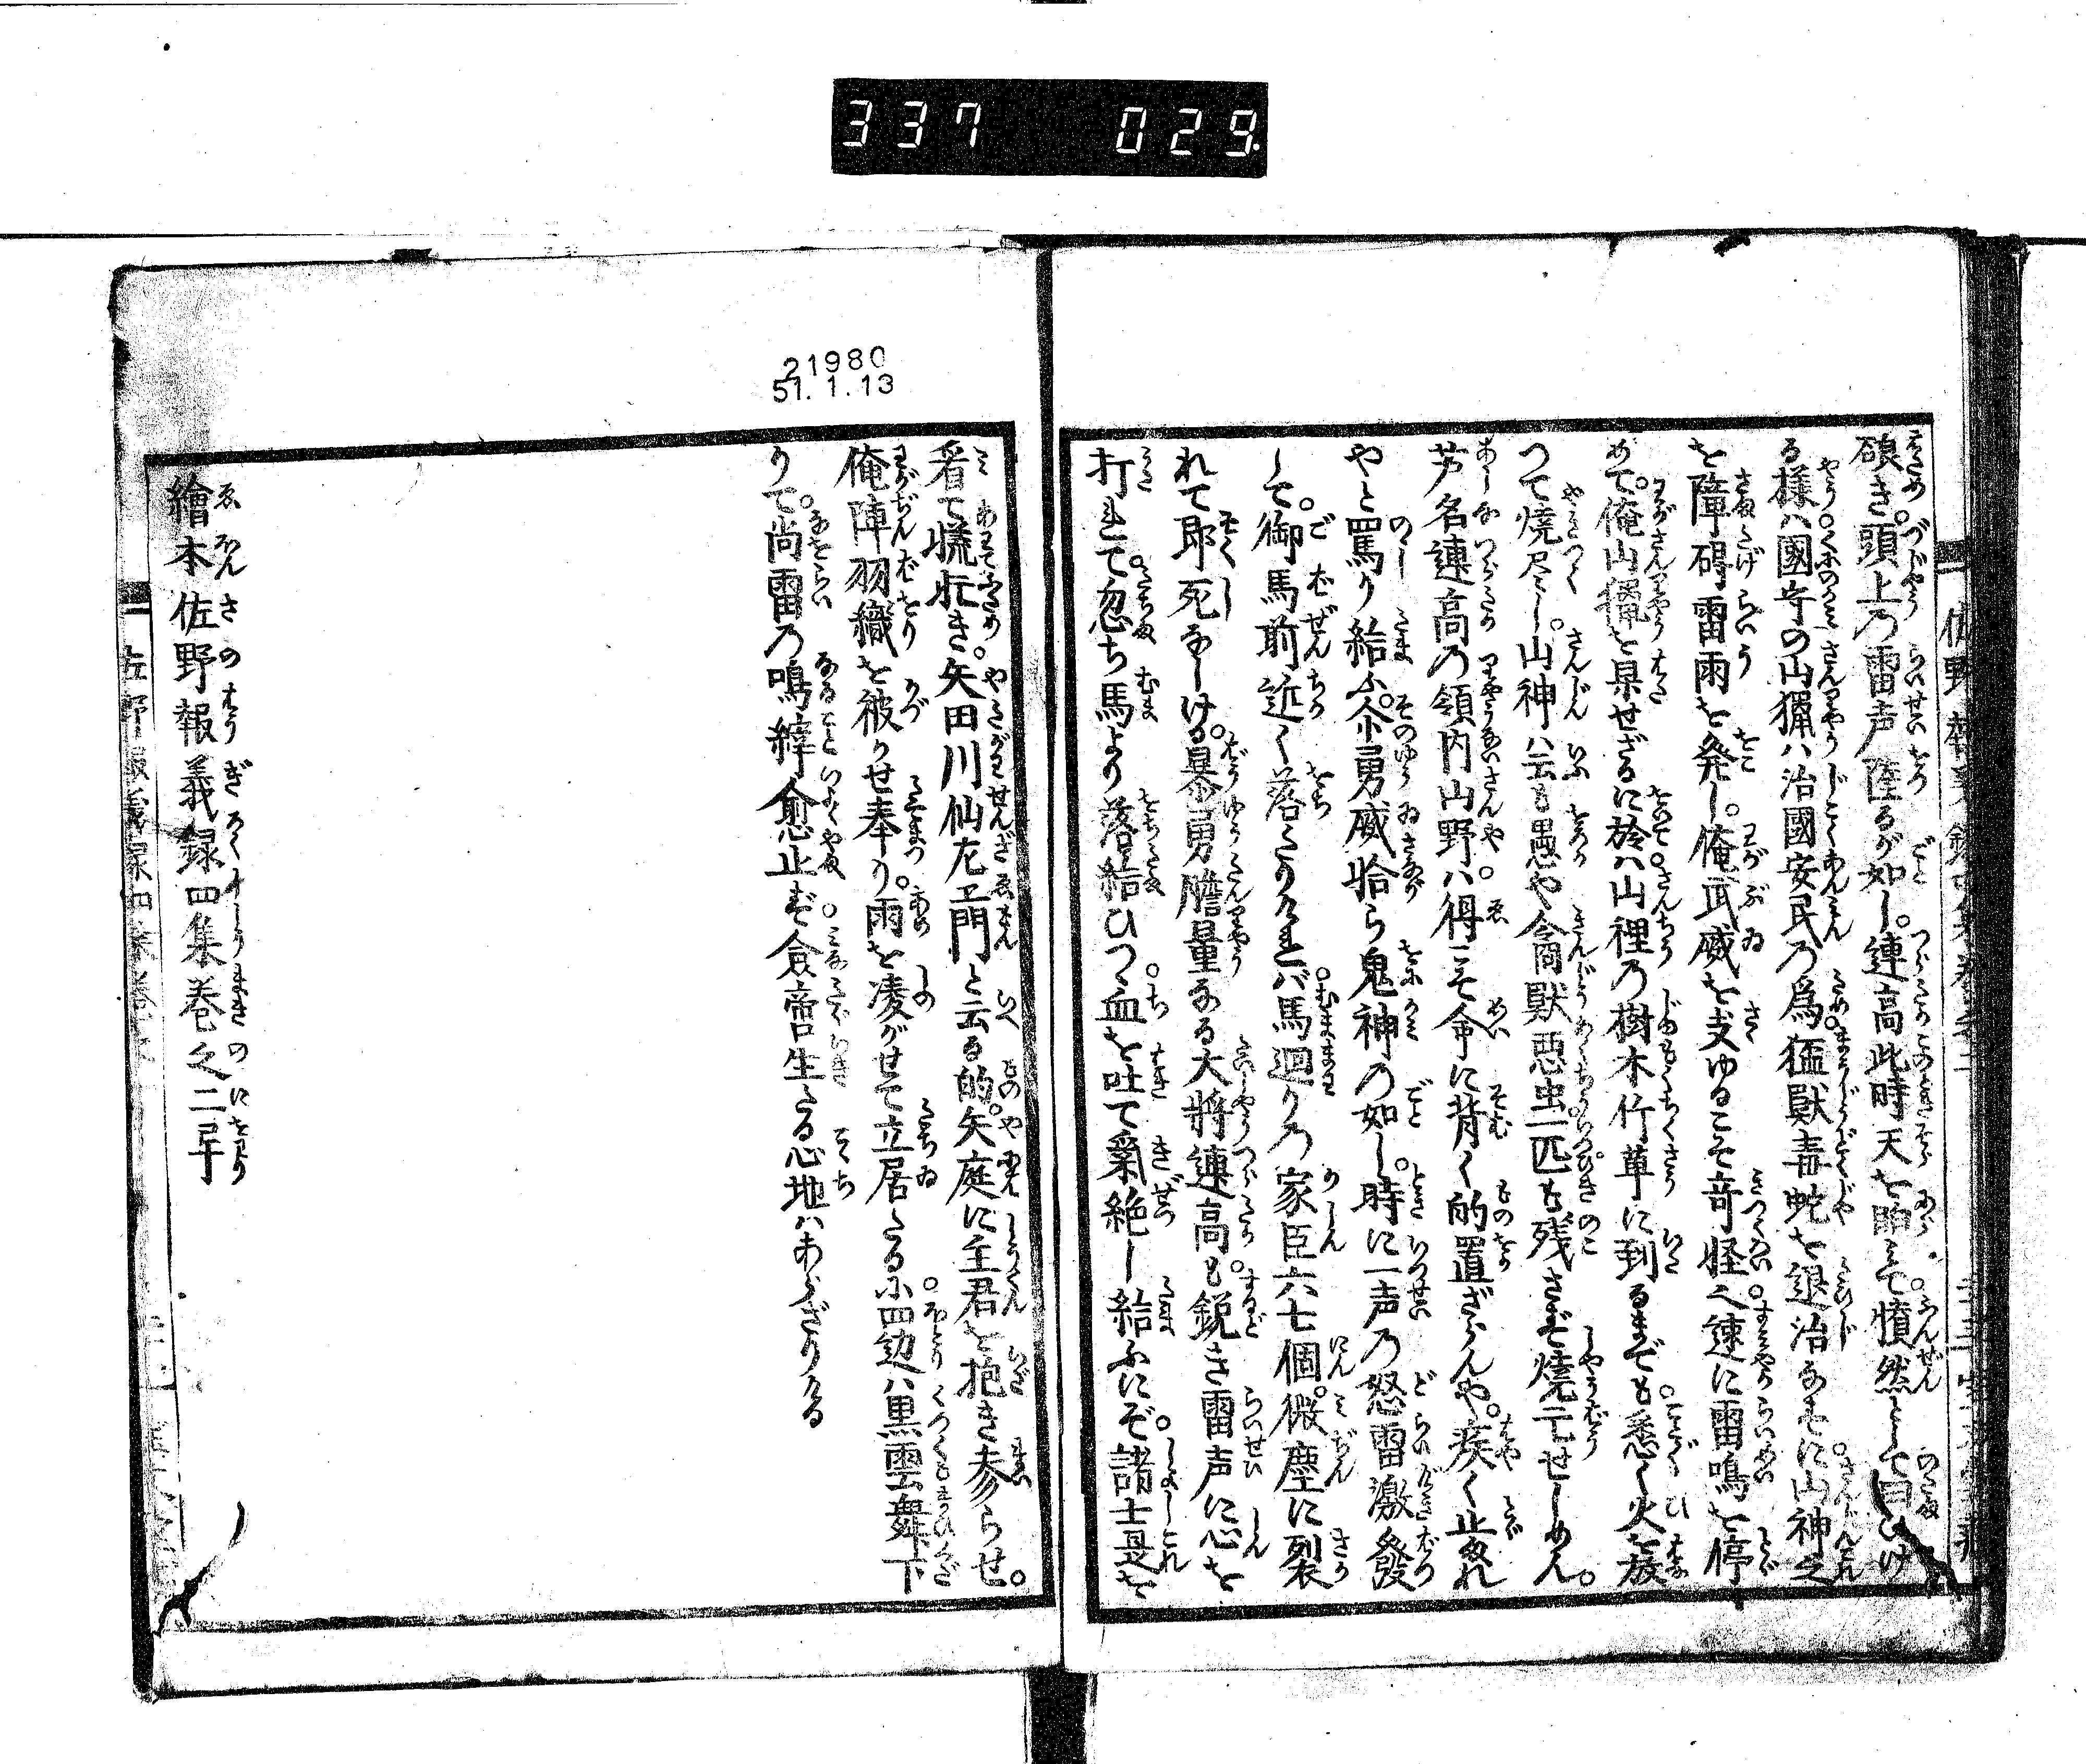 337 029
硠き。頭上の雷声陸るが如し。連高此時天を睨て憤然として曰いけ
る様ハ國守の山獵ハ治國安民の爲。猛獣毒蛇を退治なすに山神之
を障碍雷雨を発し。俺武威を支ゆるこそ奇怪へ速に雷鳴を停
めて。俺山獵を果せざるに於ハ山裡の樹木竹草に到るまでも悉く火を放
つて燒尽し。山神ハ云も愚や禽獣悪虫一匹も残さず燒亡せしめん。
芦名連高の領内山野ハ得こそ命に背く的置ざらんや。疾く止まれ
やと罵り給ふ。亽勇威恰ら鬼神の如し。時に一声の怒雷激發
して。御馬前近く落たりけれバ。馬廻りの家臣六七個。微塵に裂
れて即死なしける。暴勇膽量なる大將連高も。鋭き雷声に心を
打れて。忽ち馬より落給ひつゝ血を吐て氣絶し給ふにぞ。諸士是を
看て慌忙き。矢田川仙左エ門と云る的。矢庭に主君を抱き参らせ。
俺陣羽織を被りせ奉り。雨を凌がせて立居たるに四辺ハ黒雲舞下
りて。尚雷の鳴縡愈止ず。僉啻生たる心地ハあらざりける
繪本佐野報義録四集巻之二早
21980
51. 1. 13